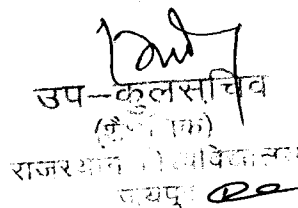 उप-कुलसचिव
राजस्थान विश्वविद्यालय
जयपुर